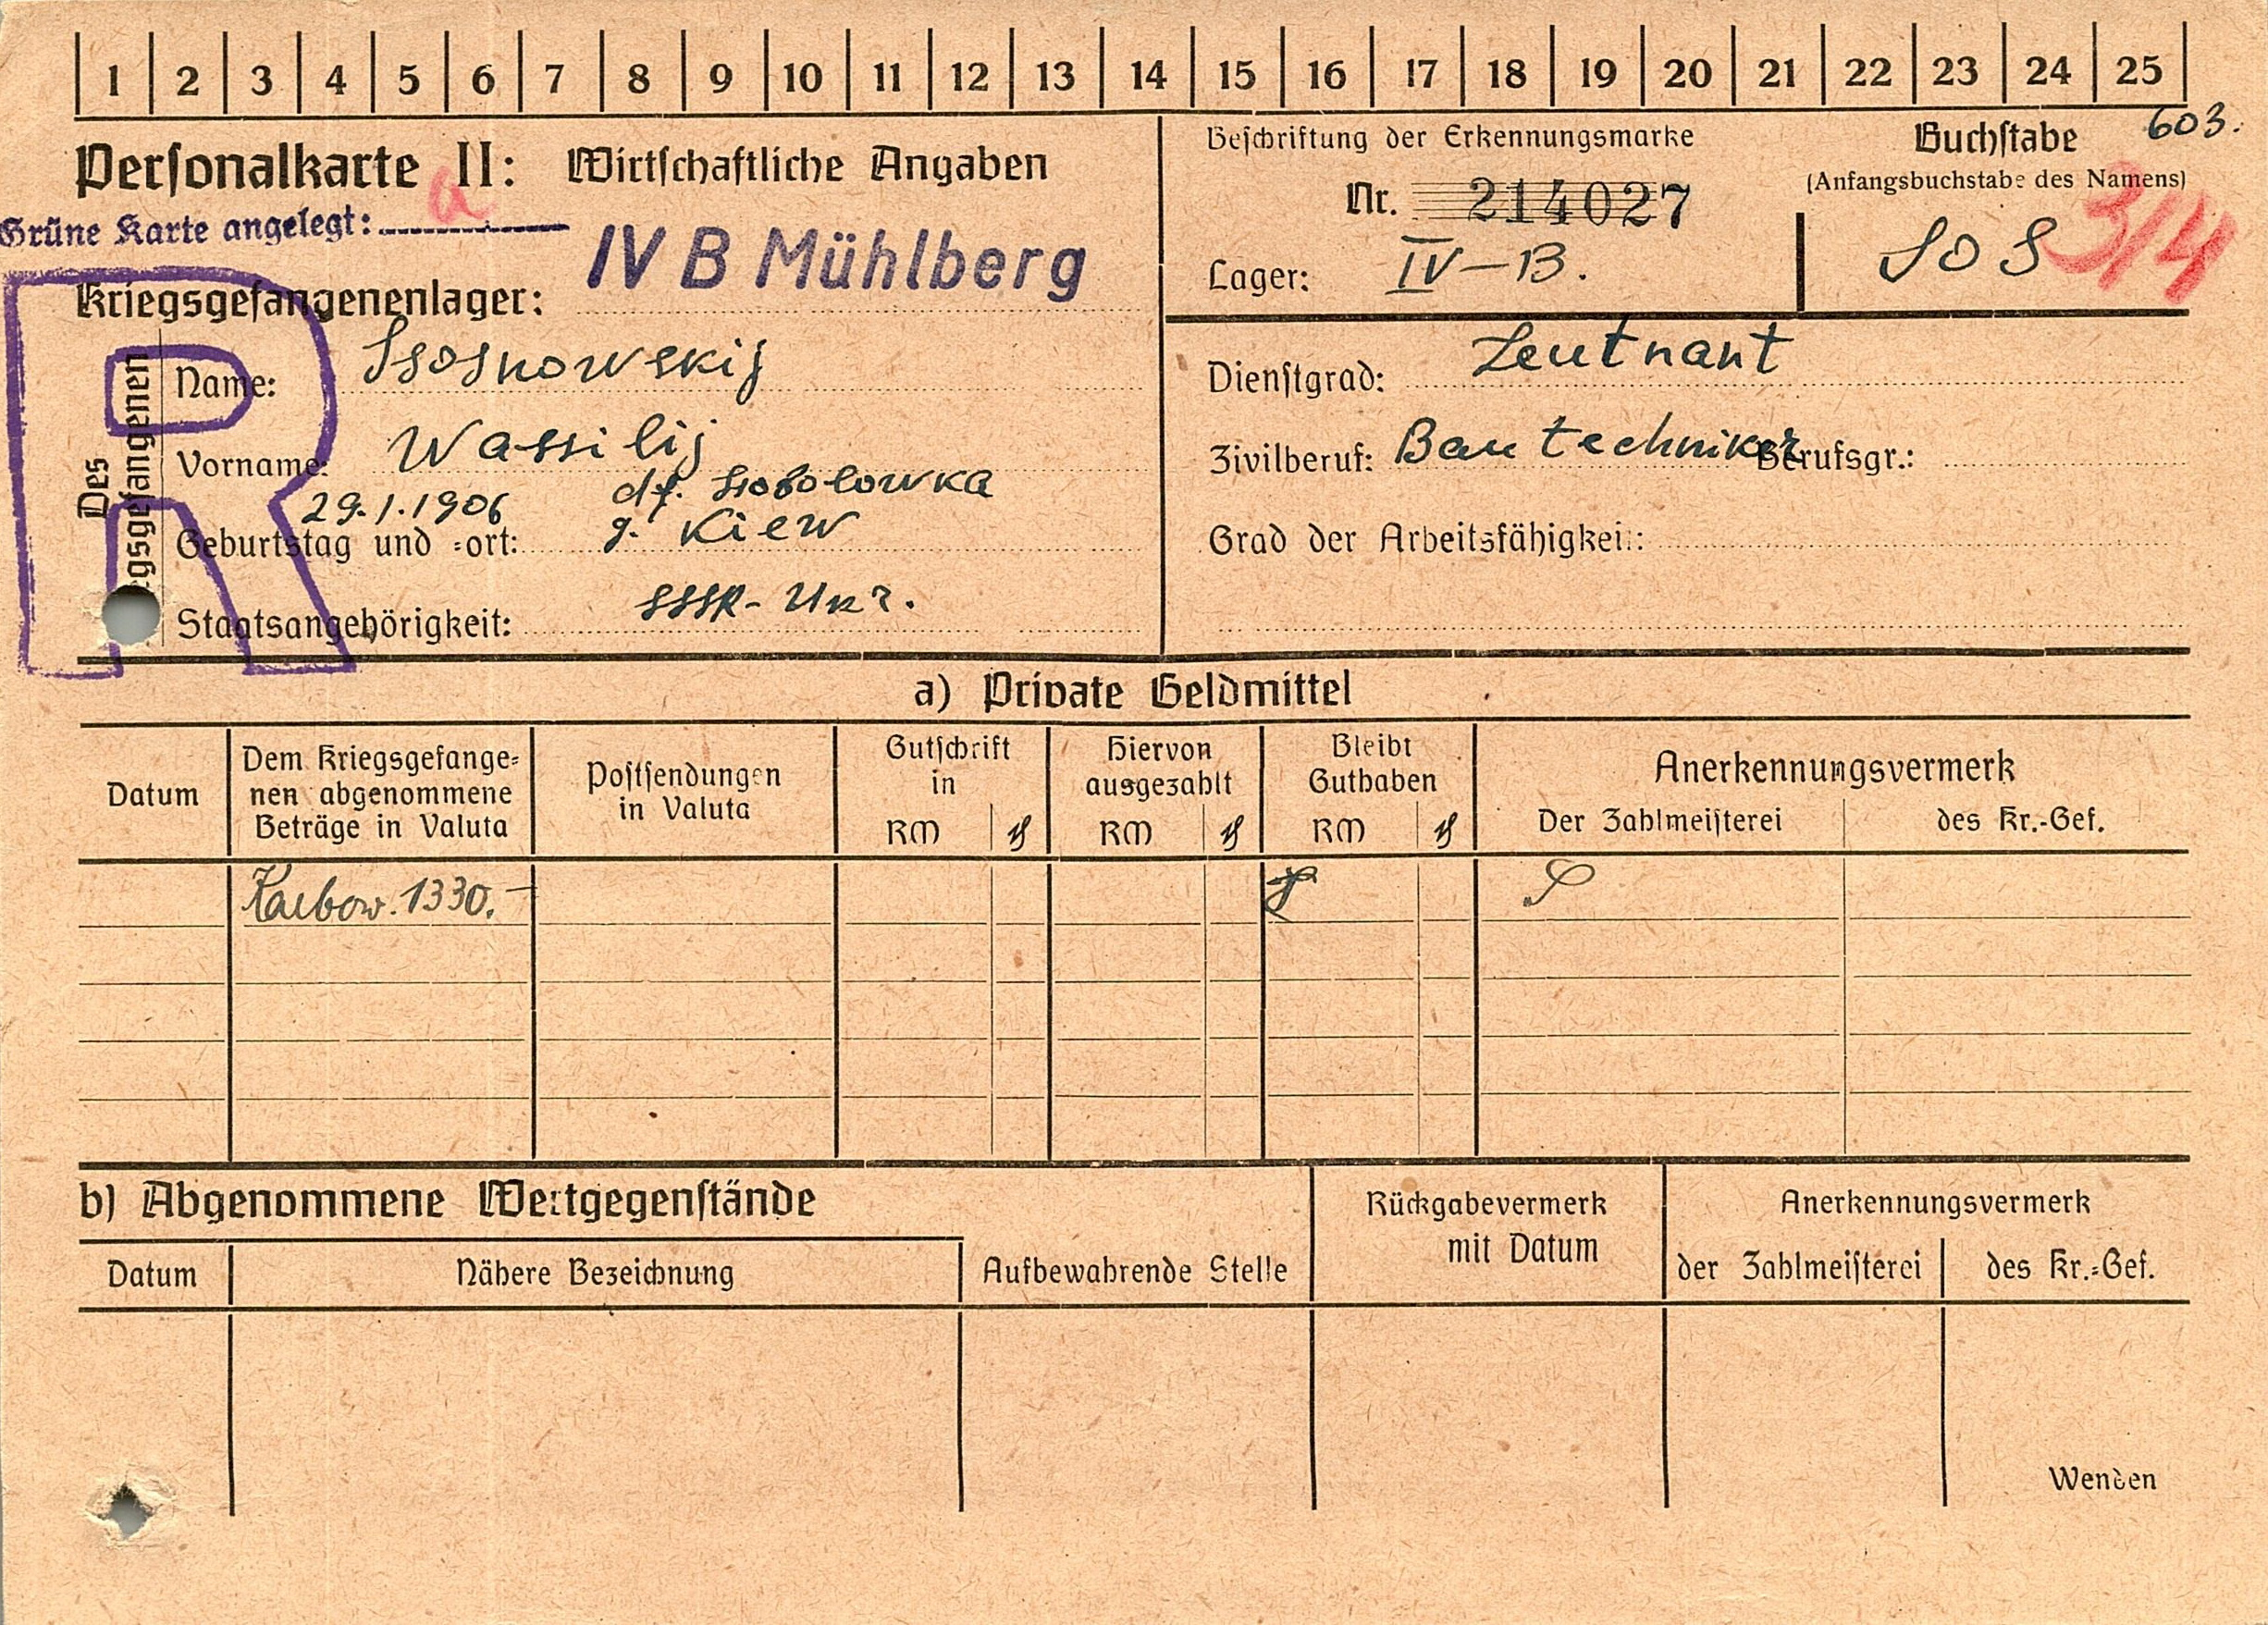 1 2 3 4 5 6 7 8 9 10 11 12 13 14 15 16 17 18 19 20 21 22 23 24 25
603.
Personalkarte II: Wirtschaftliche Angaben
a
Grüne Karte angelegt:
Kriegsgefangenenlager: IV B Mühlberg
Beschriftung der Erkennungsmarke
Nr. 214027
Lager: IV-B.
Buchstabe
(Anfangsbuchstabe des Namens)
SOS
3/4
R
Des
Kriegsgefangenen
Name: Ssosnowskij
Vorname: Wassilij
29.1.1906 df. Ssobolowka
Geburtstag und -ort: g. Kiew
Staatsangehörigkeit: SSSR-Ukr.
Dienstgrad: Leutnant
Zivilberuf: Bautechniker Berufsgr.:
Grad der Arbeitsfähigkeit:
a) Private Geldmittel
Datum
Dem Kriegsgefange-
nen abgenommene
Beträge in Valuta
Postsendungen
in Valuta
Gutschrift
in
RM ₰
Hiervon
ausgezahlt
RM ₰
Bleibt
Guthaben
RM ₰
Anerkennungsvermerk
Der Zahlmeisterei des Kr.-Gef.
Karbow. 1330.-
b) Abgenommene Wertgegenstände
Datum Nähere Bezeichnung Aufbewahrende Stelle
Rückgabevermerk
mit Datum
Anerkennungsvermerk
der Zahlmeisterei des Kr.-Gef.
Wenden